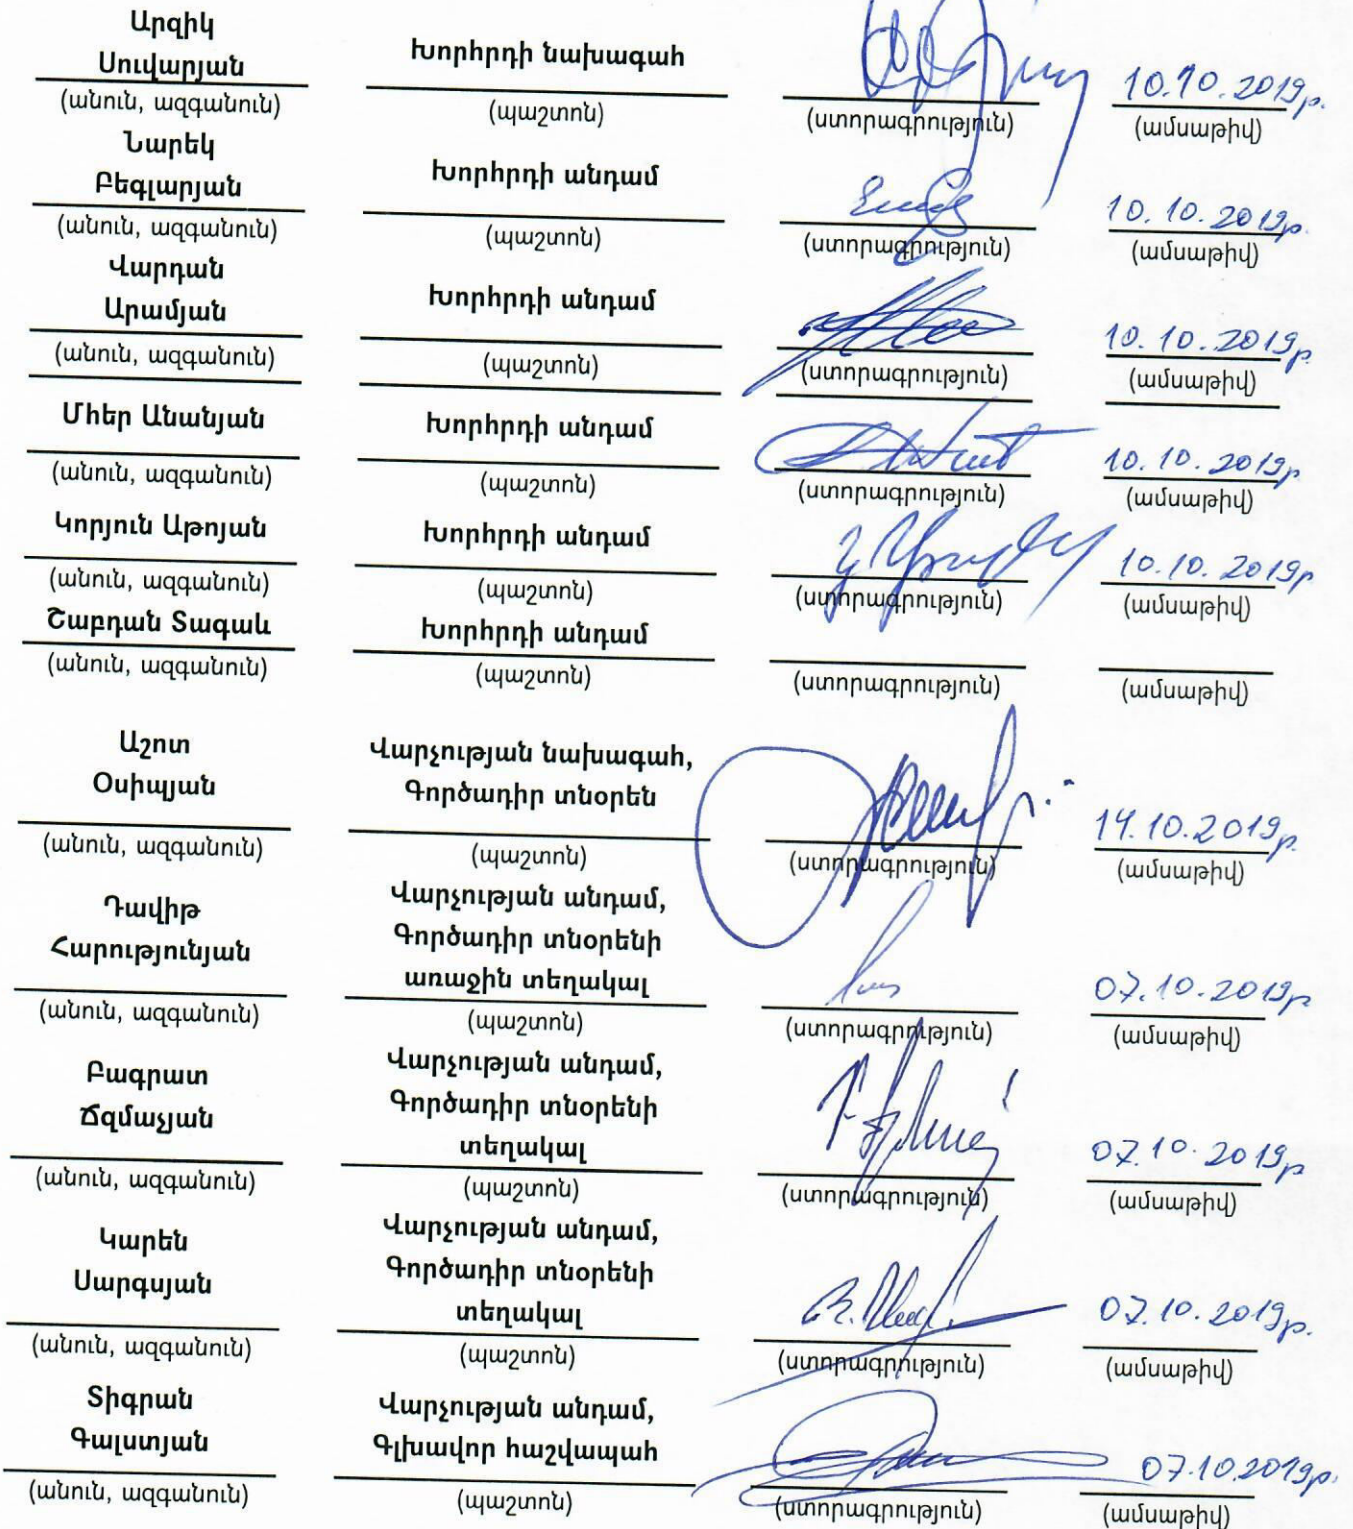 Արզիկ
Սուվարյան
Խորհրդի նախագահ
10.10.2019թ.
(անուն, ազգանուն) (պաշտոն) (ստորագրություն) (ամսաթիվ)
Նարեկ
Բեգլարյան
Խորհրդի անդամ
10.10.2019թ.
(անուն, ազգանուն) (պաշտոն) (ստորագրություն) (ամսաթիվ)
Վարդան
Արամյան
Խորհրդի անդամ
10.10.2019թ.
(անուն, ազգանուն) (պաշտոն) (ստորագրություն) (ամսաթիվ)
Մհեր Անանյան Խորհրդի անդամ 10.10.2019թ
(անուն, ազգանուն) (պաշտոն) (ստորագրություն) (ամսաթիվ)
Կորյուն Աթոյան Խորհրդի անդամ 10.10.2019թ
(անուն, ազգանուն) (պաշտոն) (ստորագրություն) (ամսաթիվ)
Շաբդան Տագաև Խորհրդի անդամ
(անուն, ազգանուն) (պաշտոն) (ստորագրություն) (ամսաթիվ)
Աշոտ
Օսիպյան
Վարչության նախագահ,
Գործադիր տնօրեն
14.10.2019թ.
(անուն, ազգանուն) (պաշտոն) (ստորագրություն) (ամսաթիվ)
Դավիթ
Հարությունյան
Վարչության անդամ,
Գործադիր տնօրենի
առաջին տեղակալ
07.10.2019թ
(անուն, ազգանուն) (պաշտոն) (ստորագրություն) (ամսաթիվ)
Բագրատ
Ճզմաչյան
Վարչության անդամ,
Գործադիր տնօրենի
տեղակալ
07.10.2019թ
(անուն, ազգանուն) (պաշտոն) (ստորագրություն) (ամսաթիվ)
Կարեն
Սարգսյան
Վարչության անդամ,
Գործադիր տնօրենի
տեղակալ
07.10.2019թ.
(անուն, ազգանուն) (պաշտոն) (ստորագրություն) (ամսաթիվ)
Տիգրան
Գալստյան
Վարչության անդամ,
Գլխավոր հաշվապահ
07.10.2019թ.
(անուն, ազգանուն) (պաշտոն) (ստորագրություն) (ամսաթիվ)